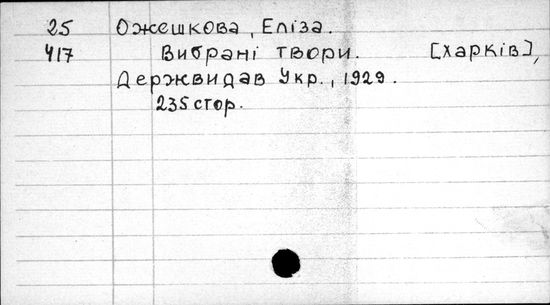 25 Ожешкова, Еліза.
417 Вибрані твори. [Харків],
Держвидав Укр., 1929.
235 стор.